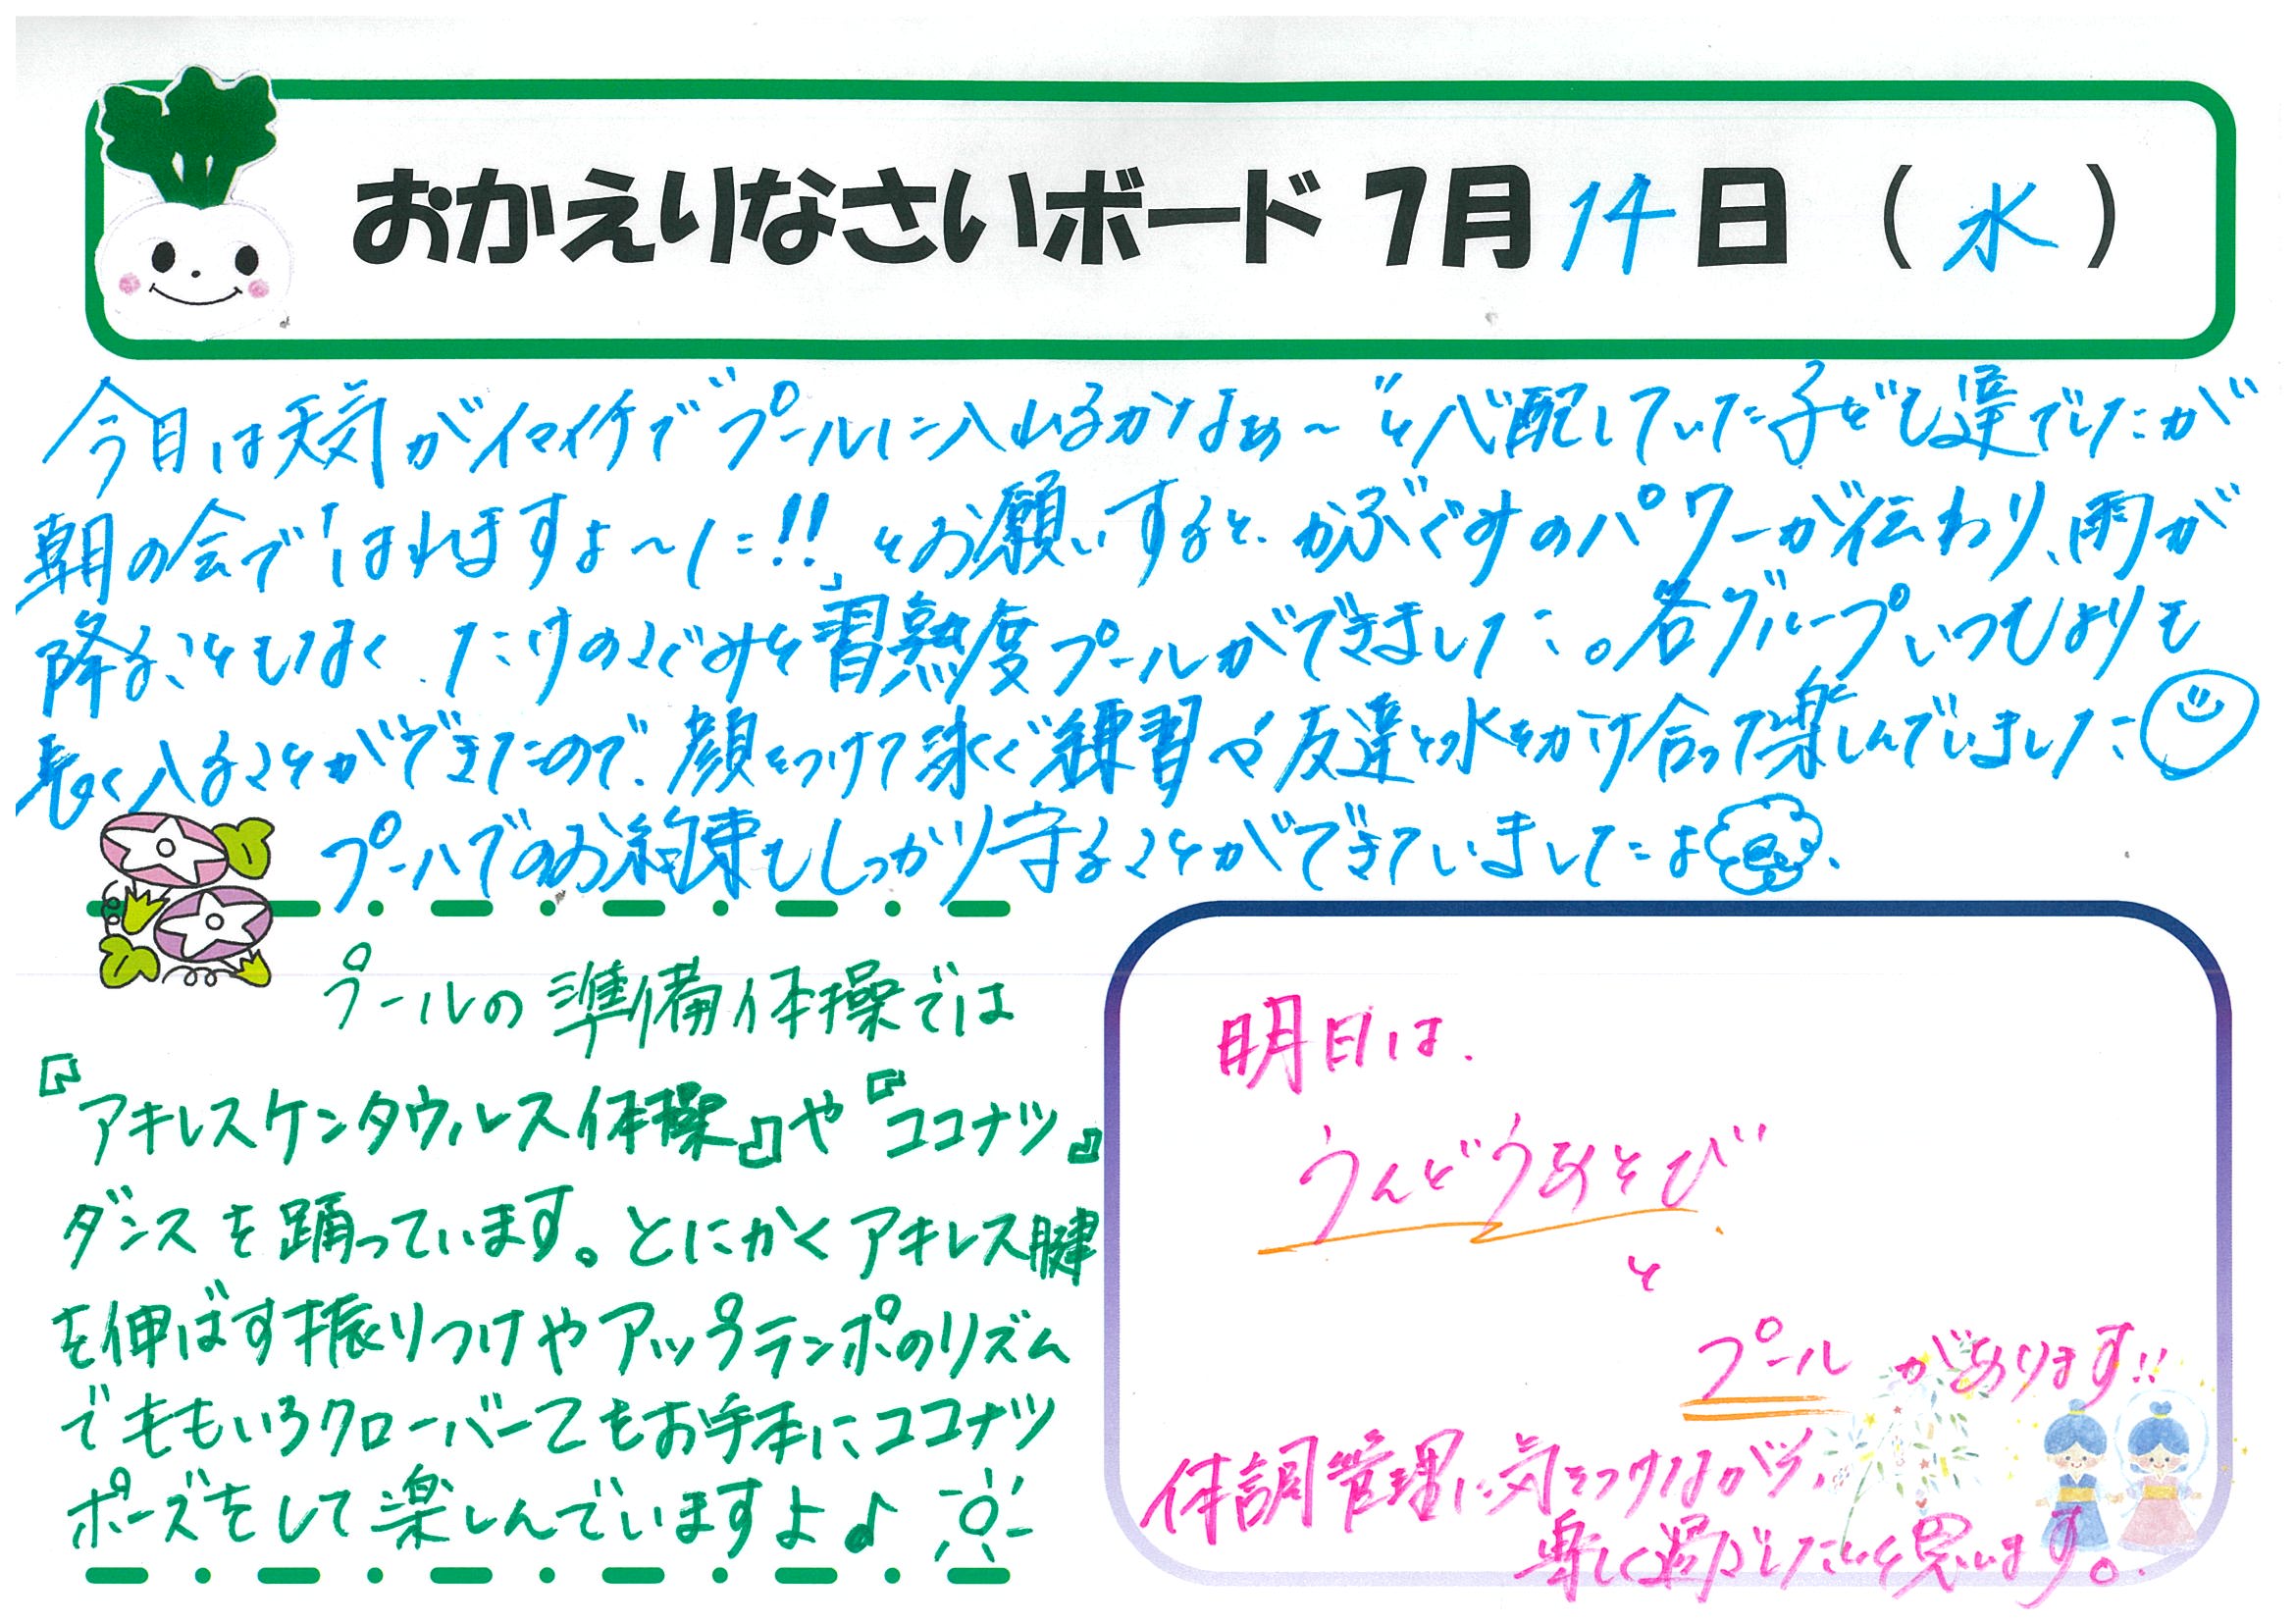 おかえりなさいボード 7月14日（水）
今日は天気がイマイチで"プールに入れるかなぁ～"と心配していた子ども達でしたが
朝の会で「はれますよ～に!!」とお願いすると、かぶぐみのパワーが伝わり、雨が
降ることもなく、たけのこぐみと習熟度プールができました。各グループいつもよりも
長く入ることができたので、顔をつけて泳ぐ練習や友達と水をかけ合って楽しんでいました
プールでのお約束もしっかり守ることができていましたよ
プールの準備体操では
『アキレスケンタウルス体操』や『ココナツ』
ダンスを踊っています。とにかくアキレス腱
を伸ばす振りつけやアップテンポのリズム
でももいろクローバーZをお手本にココナツ
ポーズをして楽しんでいますよ♪
明日は、
うんどうあそび
と
プールがあります!!
体調管理に気をつけながら、
楽しく過ごしたいと思います。